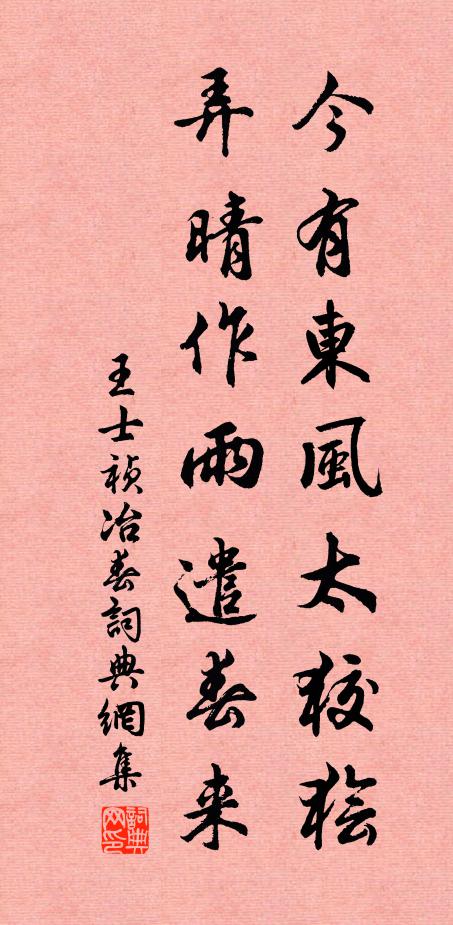 今有東風太狡獪
弄晴作雨遣春来
王士禎冶春詞典網集
詞典网印